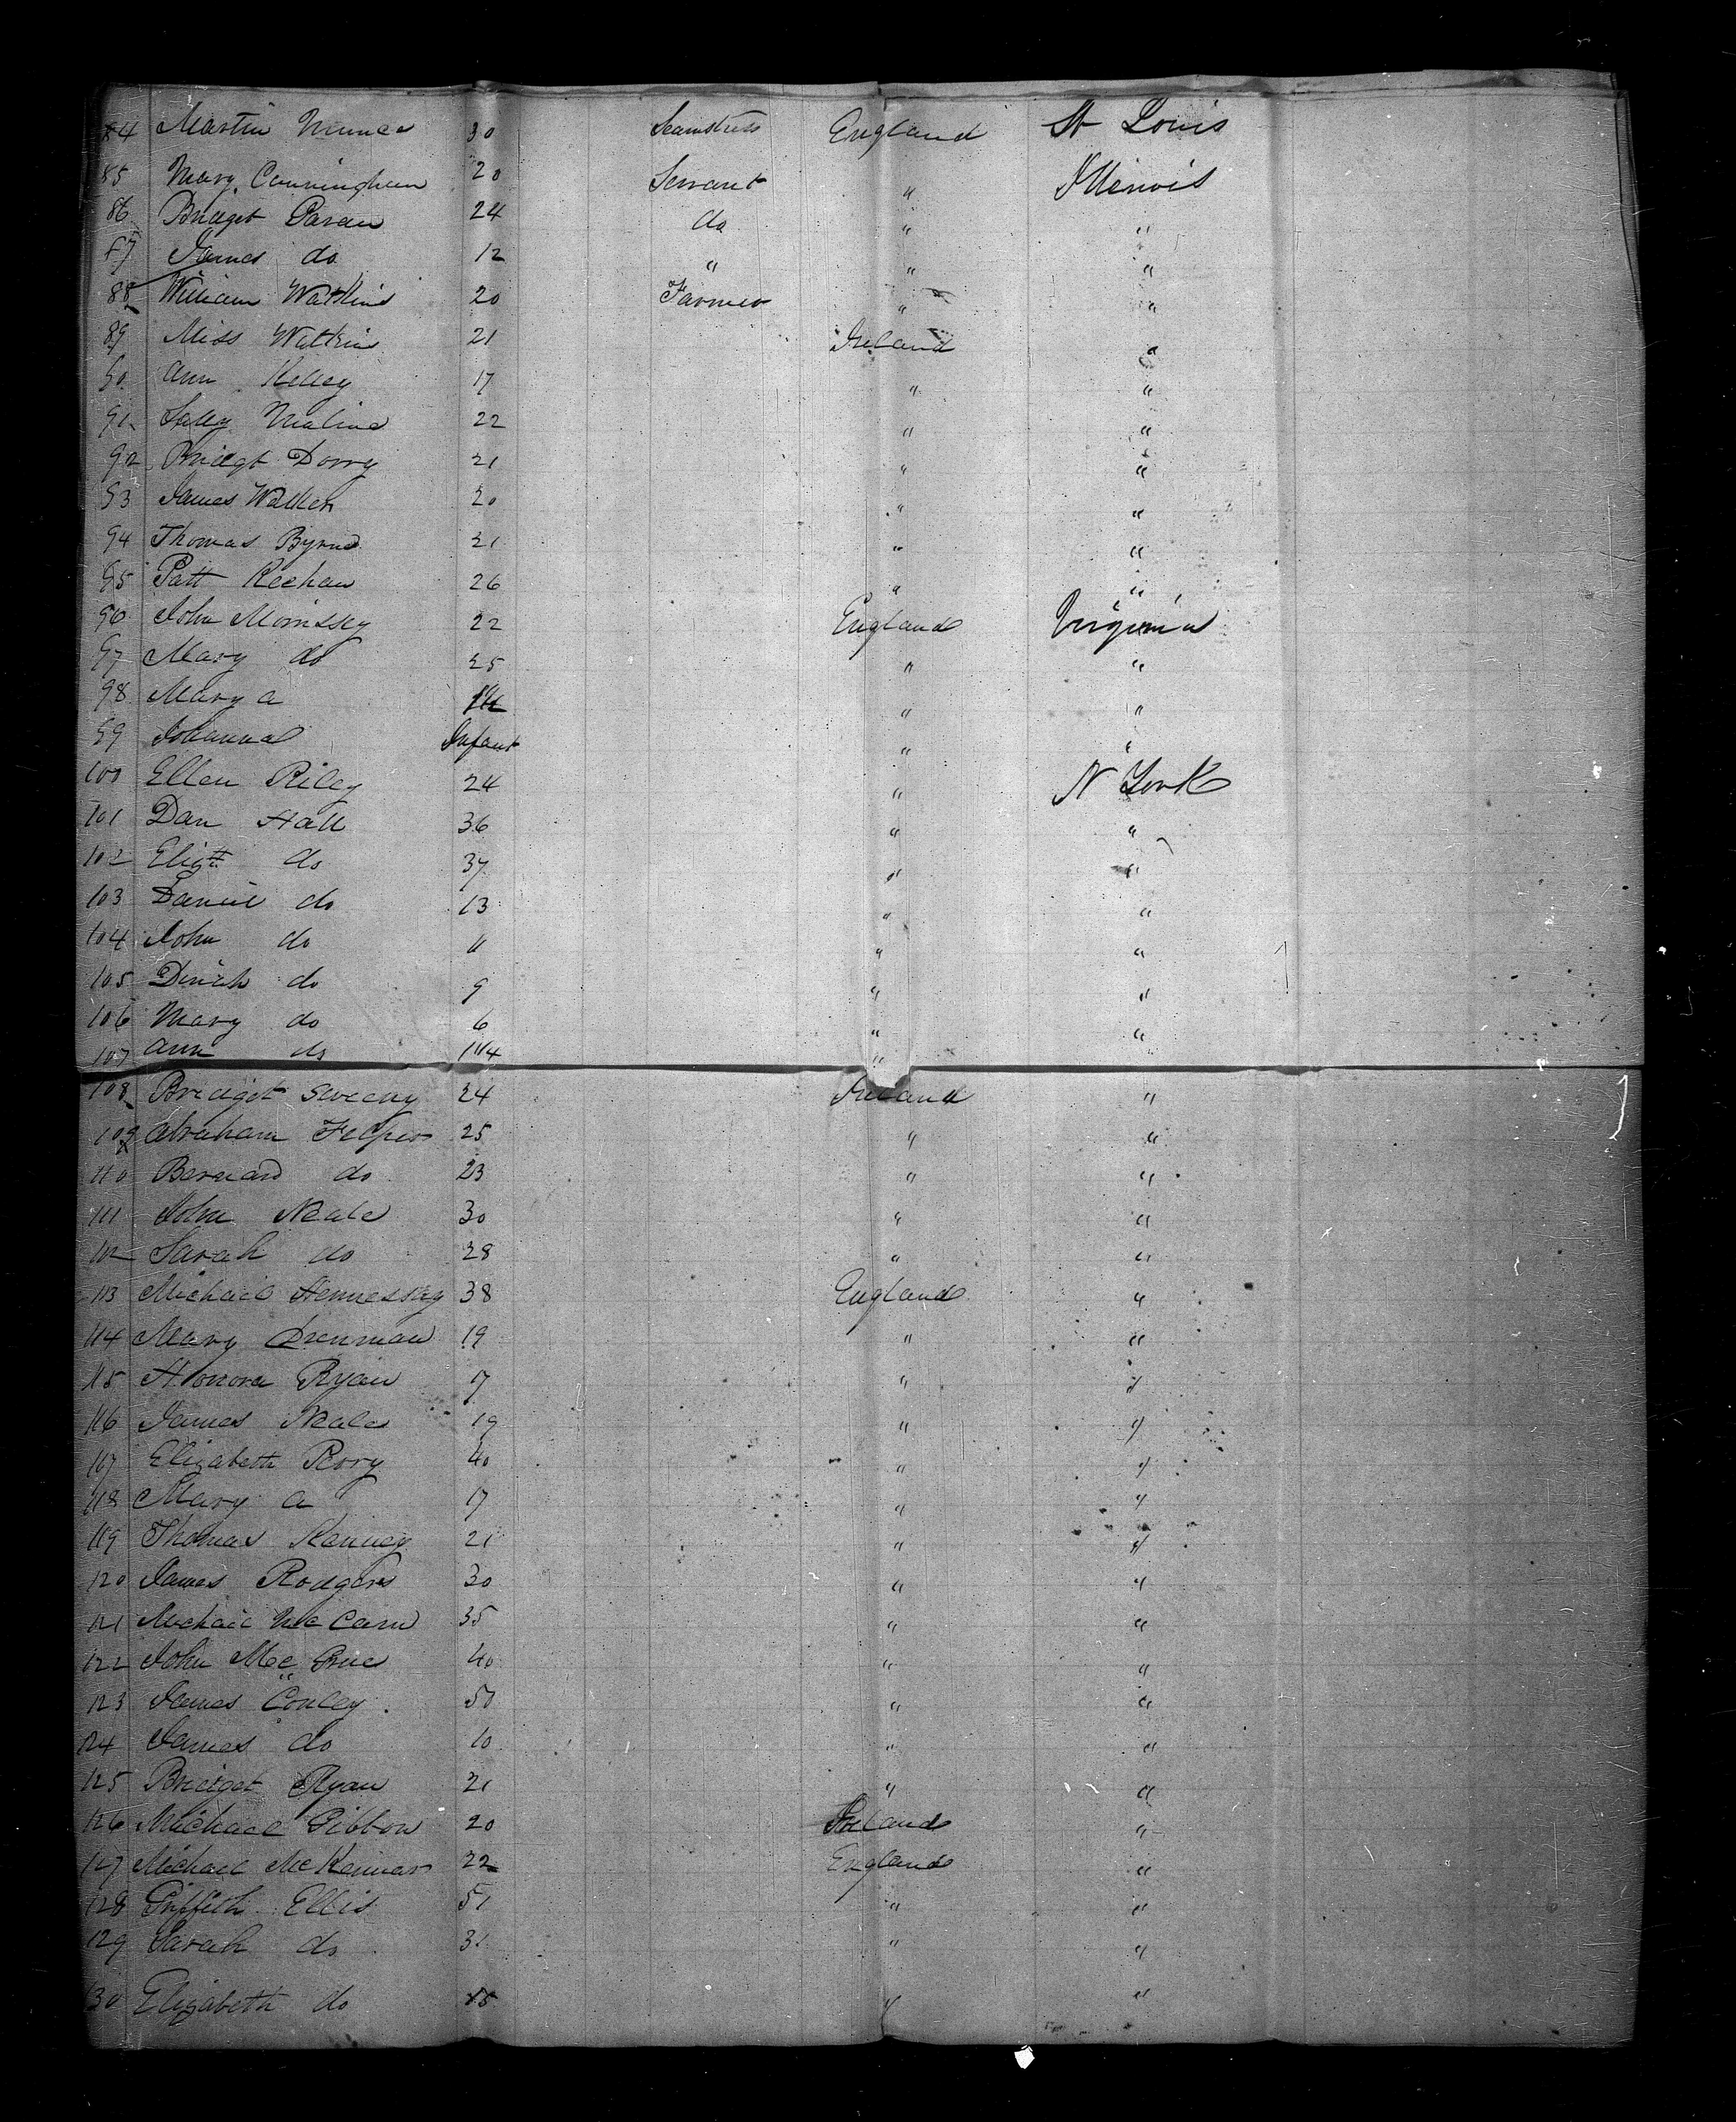 84 Martin 30 Seamstress England St Louis
85 Mary Cunningham 20 Servant " Illinois
86 Bridget 24 do " "
87 James do 12 " " "
88 William Watkins 20 Farmer " "
89 Miss Watkins 21 Ireland "
90 Ann Kelley 17 " "
91 Sally Malind 22 " "
92 Bridgt Dorry 21 " "
93 James Walker 20 " "
94 Thomas Byrne 21 " "
95 Patt Keehan 26 " "
96 John Morissey 22 England Virginia
97 Mary do 25 " "
98 Mary a " "
99 Johanna Infant " "
100 Ellen Riley 24 " N York
101 Dan Hall 36 " "
102 Elizth do 37 " "
103 Daniel do 13 " "
104 John do 11 " "
105 Dinah do 9 " "
106 Mary do 6 " "
107 Ann do "
108 Bridget Sweeny 24 Ireland "
109 Abraham 25 " "
110 Bernard do 23 " "
111 John Neale 30 " "
112 Sarah do 28 " "
113 Michael Hennessey 38 England "
114 Mary Drennan 19 " "
115 Honora Ryan 7 " "
116 James Neale 19 " "
117 Elizabeth Rory 40 " "
118 Mary a 17 " "
119 Thomas Kenney 21 " "
120 James Rodgers 30 " "
121 Michael McCann 35 " "
122 John Mc 40 " "
123 James Conley 50 " "
124 James do 10 " "
125 Bridget Ryan 21 " "
126 Michael Gibbon 20 Ireland "
127 Michael McKennar 22 England "
128 Griffith Ellis 51 " "
129 Sarah do 31 " "
130 Elizabeth do 15 " "